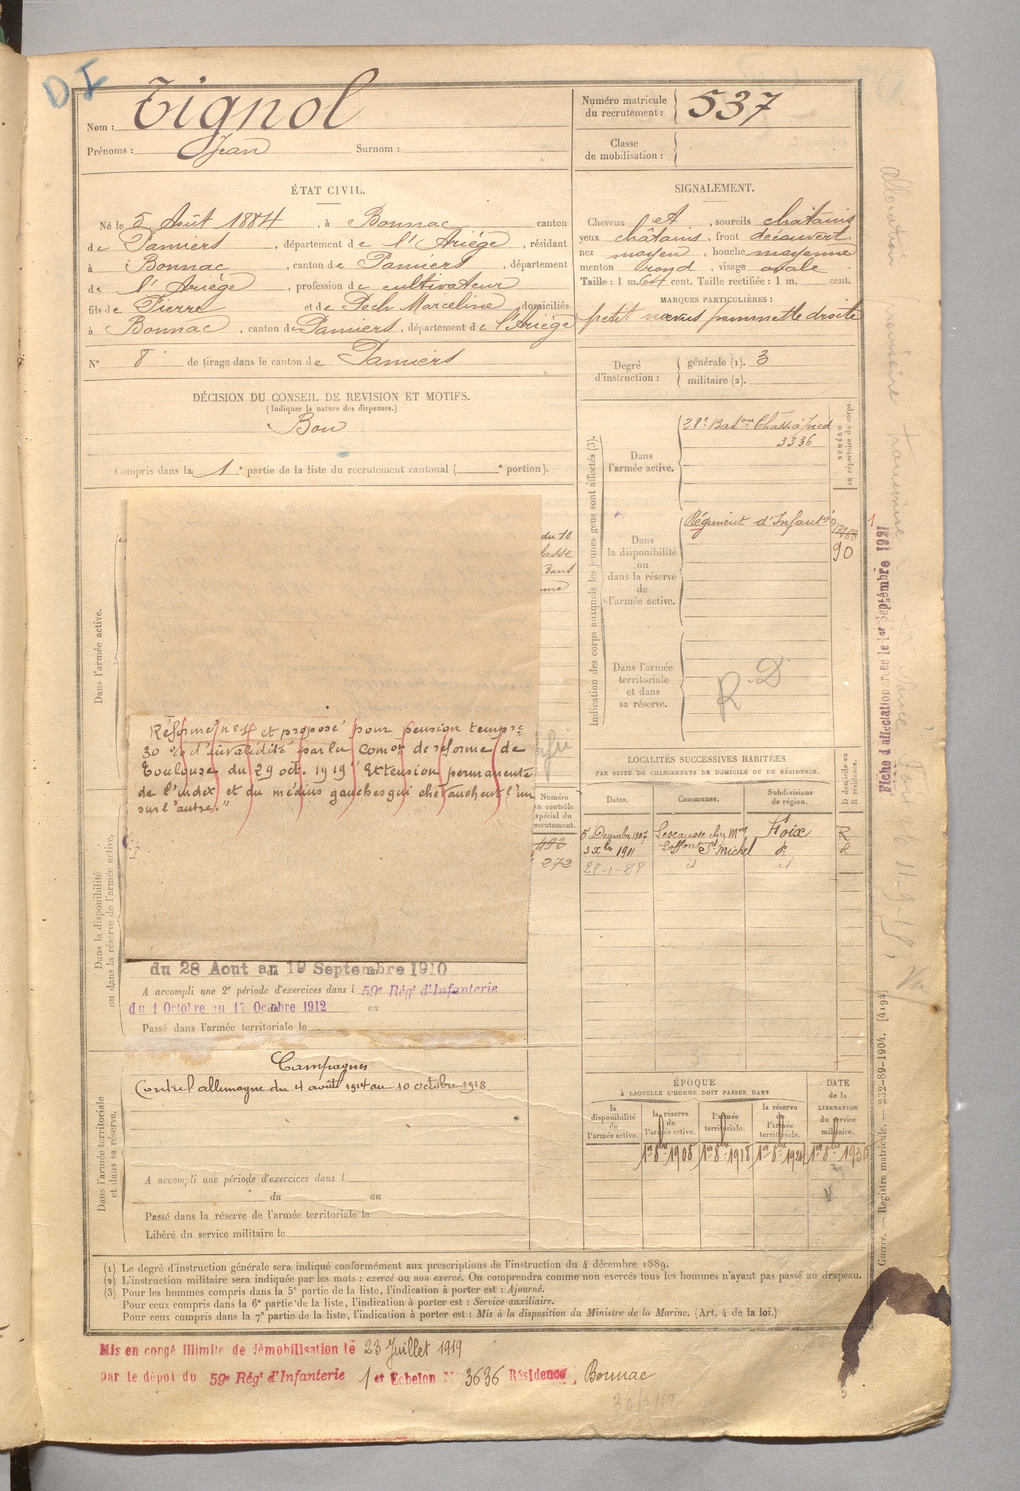 D I
Nom : Tignol
Prénoms : Jean Surnom :
Numéro matricule du recrutement : 537
Classe de mobilisation :
ÉTAT CIVIL.
Né le 5 Août 1884, à Bonnac canton
de Pamiers, département de l'Ariège, résidant
à Bonnac, canton de Pamiers, département
de l'Ariège, profession de cultivateur
fils de Pierre et de Pech Marceline, domiciliés
à Bonnac, canton de Pamiers, département de l'Ariège
N° 8 de tirage dans le canton de Pamiers
SIGNALEMENT.
Cheveux et, sourcils châtains
yeux châtains, front découvert
nez moyen, bouche moyenne
menton rond, visage ovale
Taille : 1 m. 64 cent. Taille rectifiée : 1 m. cent.
MARQUES PARTICULIÈRES :
petit nœvus pommette droite
Degré d'instruction :
générale (1). 3
militaire (2).
DÉCISION DU CONSEIL DE REVISION ET MOTIFS.
(Indiquer la nature des dispenses.)
Bon
Compris dans la 1e partie de la liste du recrutement cantonal ( e portion).
Indication des corps auxquels les jeunes gens sont affectés (3).
NUMÉRO au répertoire du corps.
Dans l'armée active.
28e Baton Chass. à pied
3336
Dans la disponibilité ou dans la réserve de l'armée active.
Régiment d'Infantie
90
Dans l'armée territoriale et dans sa réserve.
R D
Dans l'armée active.
du 16
lasse
dans
Réformé n° 1 et proposé pour pension tempre
30 % d'invalidité par la Comon de réforme de
Toulouse du 29 oct. 1919 "Extension permanente
de l'index et du médius gauches qui chevauchent l'un
sur l'autre."
Numéro au contrôle spécial du recrutement.
493
272
Dans la disponibilité ou dans la réserve de l'armée active.
du 28 Aout au 19 Septembre 1910
A accompli une 2e période d'exercices dans l 59e Régt d'Infanterie
du 1 Octobre au 17 Octobre 1912 au
Passé dans l'armée territoriale le
LOCALITÉS SUCCESSIVES HABITÉES
PAR SUITE DE CHANGEMENTS DE DOMICILE OU DE RÉSIDENCE.
Dates. Communes. Subdivisions de région. D domicile ou R résidence.
5 Décembre 1907 Lescousse chez Mme Foix R
3 Xbre 1911 St Michel d° R
28-1-28 id id
Dans l'armée territoriale et dans sa réserve.
Campagnes
Contre l'allemagne du 4 août 1914 au 10 octobre 1918
A accompli une période d'exercices dans l
du au
Passé dans la réserve de l'armée territoriale le
Libéré du service militaire le
ÉPOQUE
À LAQUELLE L'HOMME DOIT PASSER DANS
la disponibilité de l'armée active.
la réserve de l'armée active.
l'armée territoriale.
la réserve de l'armée territoriale.
DATE de la LIBÉRATION du service militaire.
1er 8bre 1908 1er 8bre 1918 1er 8bre 1924 1er 8bre 1930
(1) Le degré d'instruction générale sera indiqué conformément aux prescriptions de l'instruction du 4 décembre 1889.
(2) L'instruction militaire sera indiquée par les mots : exercé ou non exercé. On comprendra comme non exercés tous les hommes n'ayant pas passé au drapeau.
(3) Pour les hommes compris dans la 5e partie de la liste, l'indication à porter est : Ajourné.
Pour ceux compris dans la 6e partie de la liste, l'indication à porter est : Service auxiliaire.
Pour ceux compris dans la 7e partie de la liste, l'indication à porter est : Mis à la disposition du Ministre de la Marine. (Art. 4 de la loi.)
Mis en congé illimité de démobilisation le 23 Juillet 1919
par le dépôt du 59e Régt d'Infanterie 1 er Echelon N° 3636 Résidence, Bonnac
Fiche d'affectation créée le 1er Septembre 1921
Guerre. — Registre matricule. — 232-89-1904. [4194]